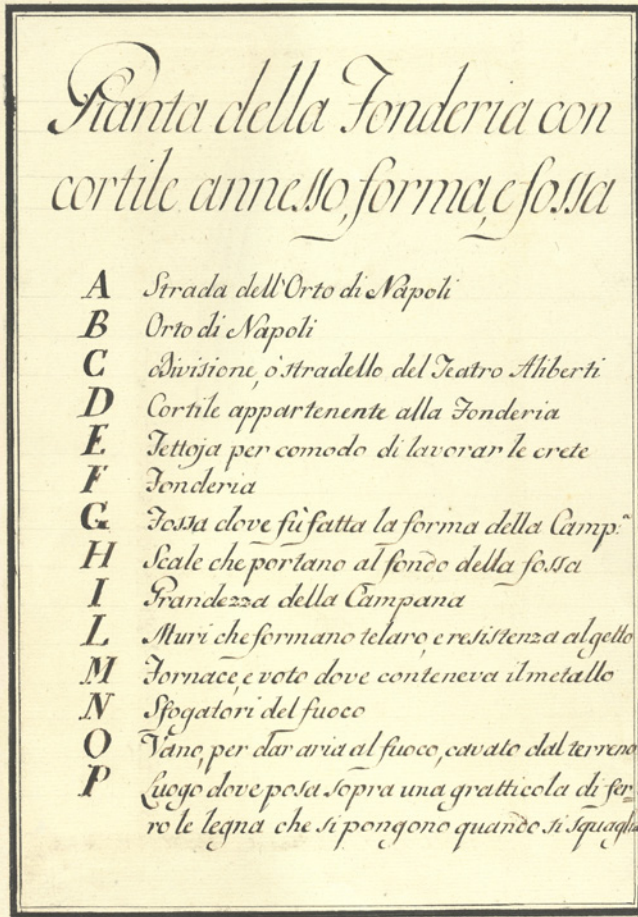 Pianta della Fonderia con
cortile annesso, forma, e fossa
A Strada dell'Orto di Napoli
B Orto di Napoli
C Divisione, ò stradello del Teatro Aliberti
D Cortile appartenente alla Fonderia
E Tettoja per comodo di lavorar le crete
F Fonderia
G Fossa dove fù fatta la forma della Camp.ª
H Scale che portano al fondo della fossa
I Grandezza della Campana
L Muri che formano telaro, e resistenza al getto
M Fornace, e voto dove conteneva il metallo
N Sfogatori del fuoco
O Vano, per dar aria al fuoco, cavato dal terreno
P Luogo dove posa sopra una gratticola di fer=
ro le legna che si pongono quando si squaglia